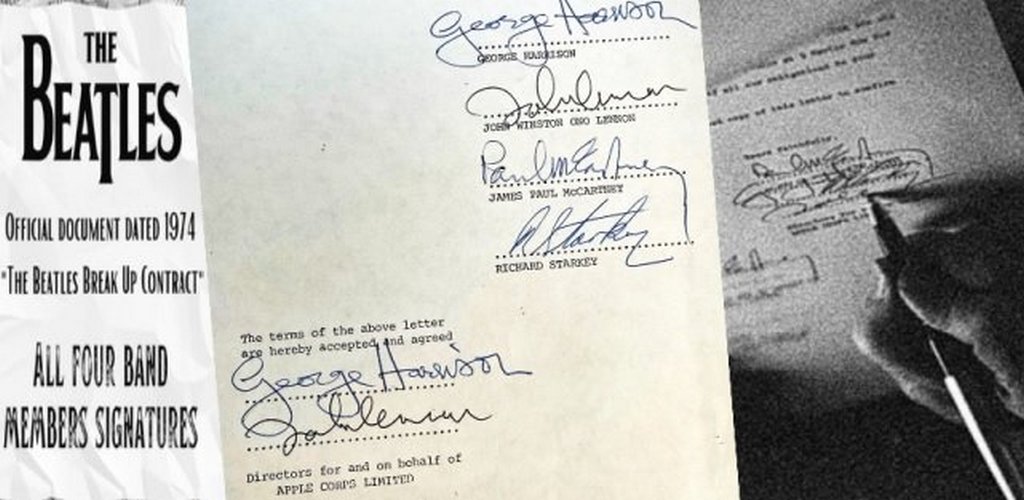 THE
BEATLES
OFFICIAL DOCUMENT DATED 1974
"THE BEATLES BREAK UP CONTRACT"
ALL FOUR BAND
MEMBERS SIGNATURES
George Harrison
GEORGE HARRISON
John Lennon
JOHN WINSTON ONO LENNON
Paul McCartney
JAMES PAUL McCARTNEY
R Starkey
RICHARD STARKEY
The terms of the above letter
are hereby accepted and agreed
George Harrison
John Lennon
Directors for and on behalf of
APPLE CORPS LIMITED
copy of this letter to confirm